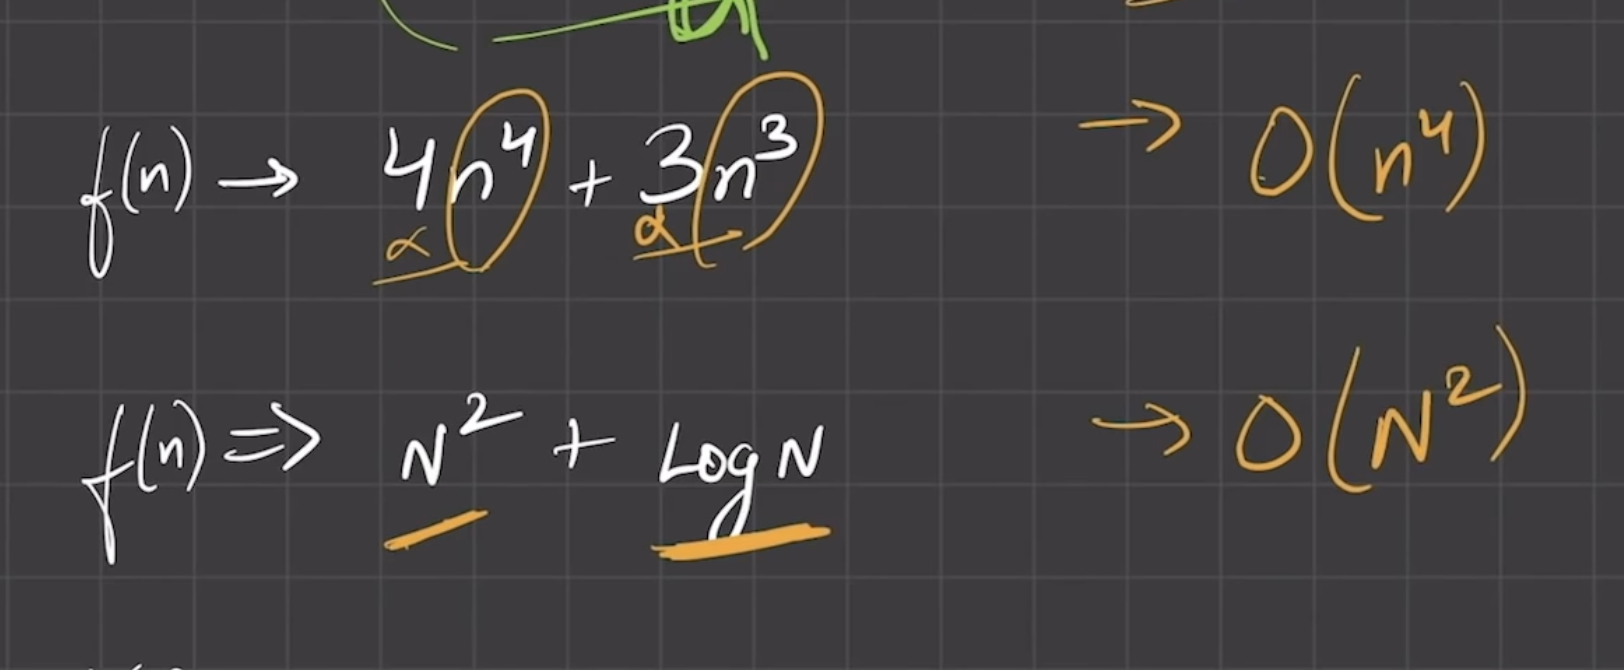 f(n) → 4n⁴ + 3n³ → O(n⁴)
α α
f(n) ⇒ N² + Log N → O(N²)